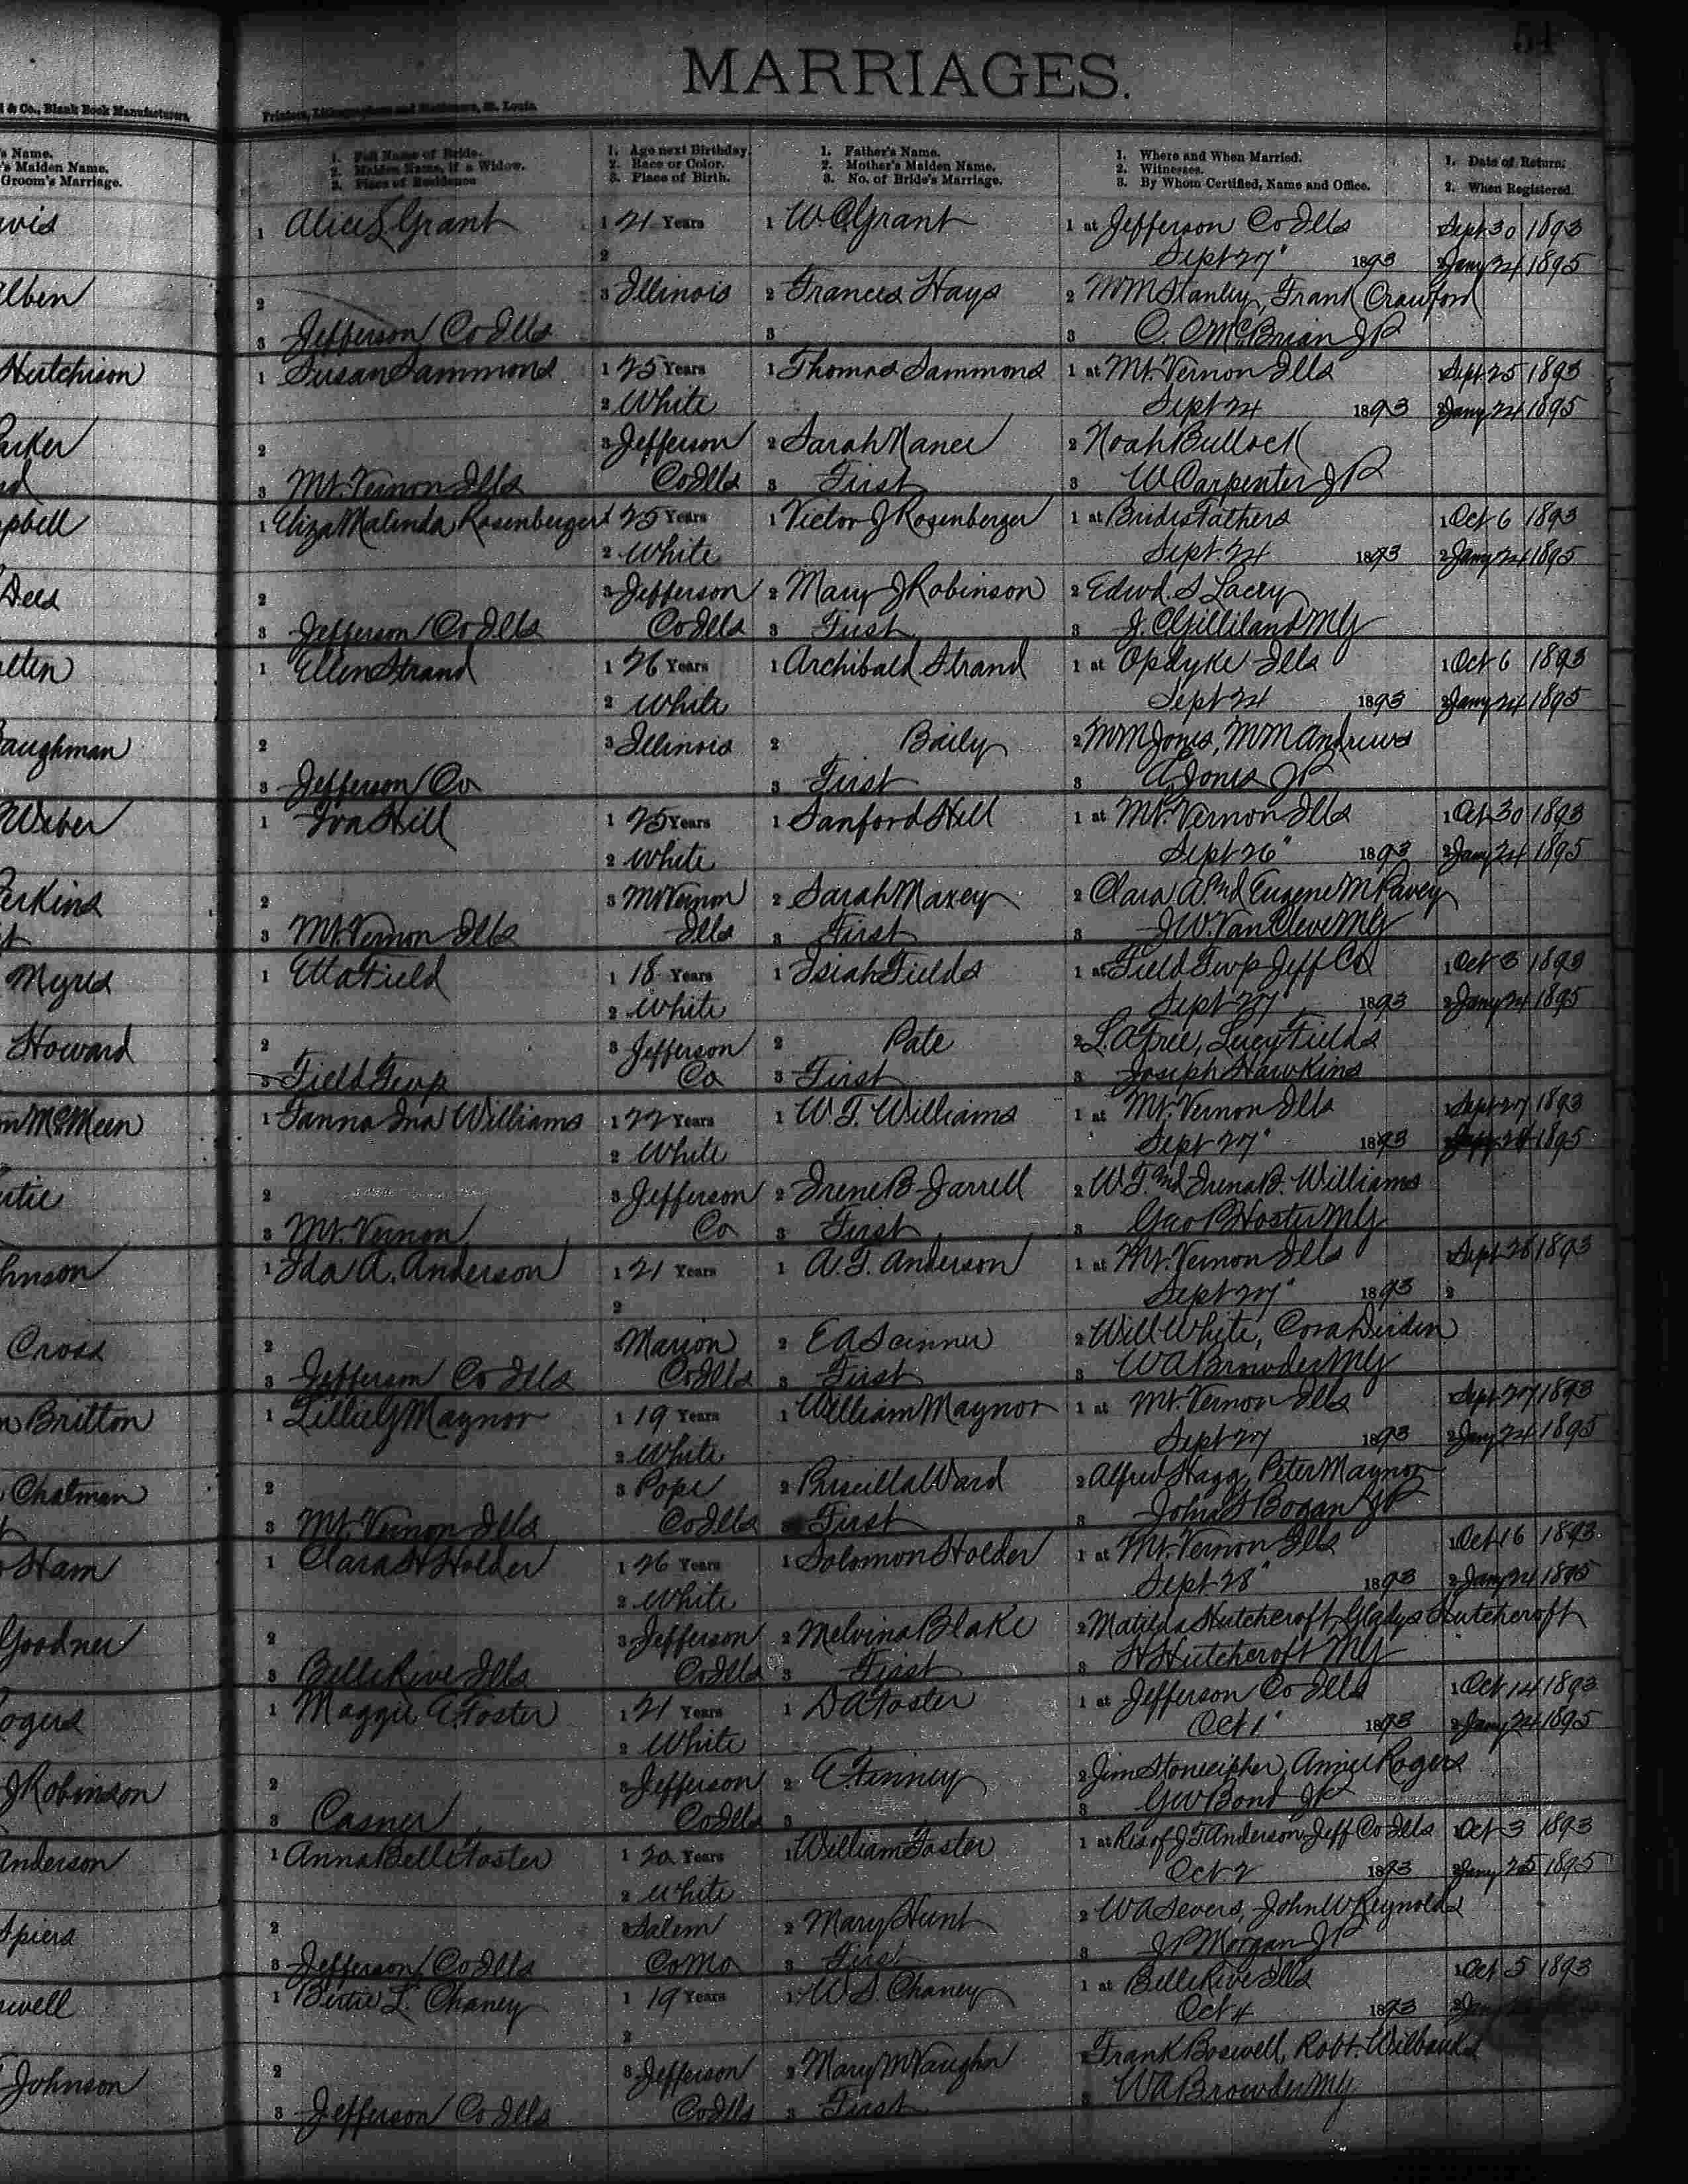 54
MARRIAGES.
& Co., Blank Book Manufacturers,
Printers, Lithographers and Stationers, St. Louis.
's Name.
's Maiden Name.
Groom's Marriage.
1. Full Name of Bride.
2. Maiden Name, if a Widow.
3. Place of Residence
1. Age next Birthday.
2. Race or Color.
3. Place of Birth.
1. Father's Name.
2. Mother's Maiden Name.
3. No. of Bride's Marriage.
1. Where and When Married.
2. Witnesses.
3. By Whom Certified, Name and Office.
1. Date of Return.
2. When Registered.
vis 1 Alice L Grant 1 21 Years 1 W. C. Grant 1 at Jefferson Co Ills Sept 30 1893
2 Sept 27" 1893 2 Jany 24 1895
alben 2 3 Illinois 2 Frances Hays 2 Wm Stanley, Frank Crawford
3 Jefferson Co Ills 3 3 C. C McBrian JP
Hutchison 1 Susan Sammons 1 25 Years 1 Thomas Sammons 1 at Mt. Vernon Ills Sept 25 1893
2 White Sept 24 1893 2 Jany 24 1895
arker 2 3 Jefferson 2 Sarah Maner 2 Noah Bullock
3 Mt. Vernon Ills Co Ills 3 First 3 W Carpenter JP
pbell 1 Eliza Malinda Rosenberger 1 25 Years 1 Victor J Rosenberger 1 at Brides Fathers 1 Oct 6 1893
2 White Sept. 24 1893 2 Jany 24 1895
Dees 2 3 Jefferson 2 Mary J Robinson 2 Edwd. S Lacey
3 Jefferson Co Ills Co Ills 3 First 3 J. C Gilliland MG
elten 1 Ellen Strand 1 26 Years 1 Archibald Strand 1 at Opdyke Ills 1 Oct 6 1893
2 White Sept 24 1893 2 Jany 24 1895
aughman 2 3 Illinois 2 Baily 2 Wm Jones, Wm Andrews
3 Jefferson Co 3 First 3 A Jones JP
Weber 1 Iva Hill 1 25 Years 1 Sanford Hill 1 at Mt. Vernon Ills 1 Oct 30 1893
2 White Sept 26" 1893 2 Jany 24 1895
erkins 2 3 Mt Vernon 2 Sarah Maxey 2 Clara A. and Eugene M Pavey
3 Mt. Vernon Ills Ills 3 First 3 J. W. Van Cleve MG
Myres 1 Etta Field 1 18 Years 1 Isiah Fields 1 at Field Twp Jeff Co 1 Oct 3 1893
2 White Sept 27" 1893 2 Jany 24 1895
Howard 2 3 Jefferson 2 Pate 2 L. A Free, Lucy Fields
3 Field Twp Co 3 First 3 Joseph Hawkins
m McMeen 1 Fanna Ina Williams 1 22 Years 1 W. T. Williams 1 at Mt. Vernon Ills 1 Sept 27 1893
2 White Sept 27" 1893 1895
utie 2 3 Jefferson 2 Irene B Jarrell 2 W. T. and Irena B. Williams
3 Mt. Vernon Co 3 First 3 Geo B Hoster MG
hnson 1 Ida A. Anderson 1 21 Years 1 A. T. Anderson 1 at Mt. Vernon Ills 1 Sept 28 1893
2 Sept 27" 1893 2
Cross 2 3 Marion 2 E A Scinner 2 Will White, Cora Dirden
3 Jefferson Co Ills Co Ills 3 First 3 W A Browder MG
n Britton 1 Lillie G Maynor 1 19 Years 1 William Maynor 1 at Mt. Vernon Ills 1 Sept 27 1893
2 White Sept 27 1893 2 Jany 24 1895
Chatman 2 3 Pope 2 Priscilla Ward 2 Alfred Hagg, Peter Maynor
3 Mt. Vernon Ills Co Ills 3 First 3 John S Bogan JP
Ham 1 Clara H Holder 1 26 Years 1 Solomon Holder 1 at Mt. Vernon Ills 1 Oct 16 1893
2 White Sept. 28" 1893 2 Jany 24 1895
Goodner 2 3 Jefferson 2 Melvina Blake 2 Matilda Hutchcroft, Gladys Hutchcroft
3 Belle Rive Ills Co Ills 3 First 3 H Hutchcroft MG
ogers 1 Maggie A. Foster 1 21 Years 1 D A Foster 1 at Jefferson Co Ills 1 Oct 14 1893
2 White Oct 1" 1893 2 Jany 24 1895
J Robinson 2 3 Jefferson 2 E. Finney 2 Jim Stonecipher, Annie Rogers
3 Casner Co Ills 3 3 G W Bond JP
Anderson 1 Anna Belle Foster 1 20 Years 1 William Foster 1 at Res of J T Anderson Jeff Co Ills 1 Oct 3 1893
2 White Oct. 2 1893 2 Jany 25 1895
Spiers 2 3 Salem 2 Mary Hunt 2 W A Severs, John W Reynolds
3 Jefferson Co Ills Co Mo 3 First 3 J P Morgan JP
well 1 Bertie L. Chaney 1 19 Years 1 W. S. Chaney 1 at Belle Rive Ills 1 Oct 5 1893
2 Oct 4 1893 2 Jany
Johnson 2 3 Jefferson 2 Mary M Vaughn 2 Frank Boswell, Robt. Wilbanks
3 Jefferson Co Ills Co Ills 3 First 3 W A Browder MG